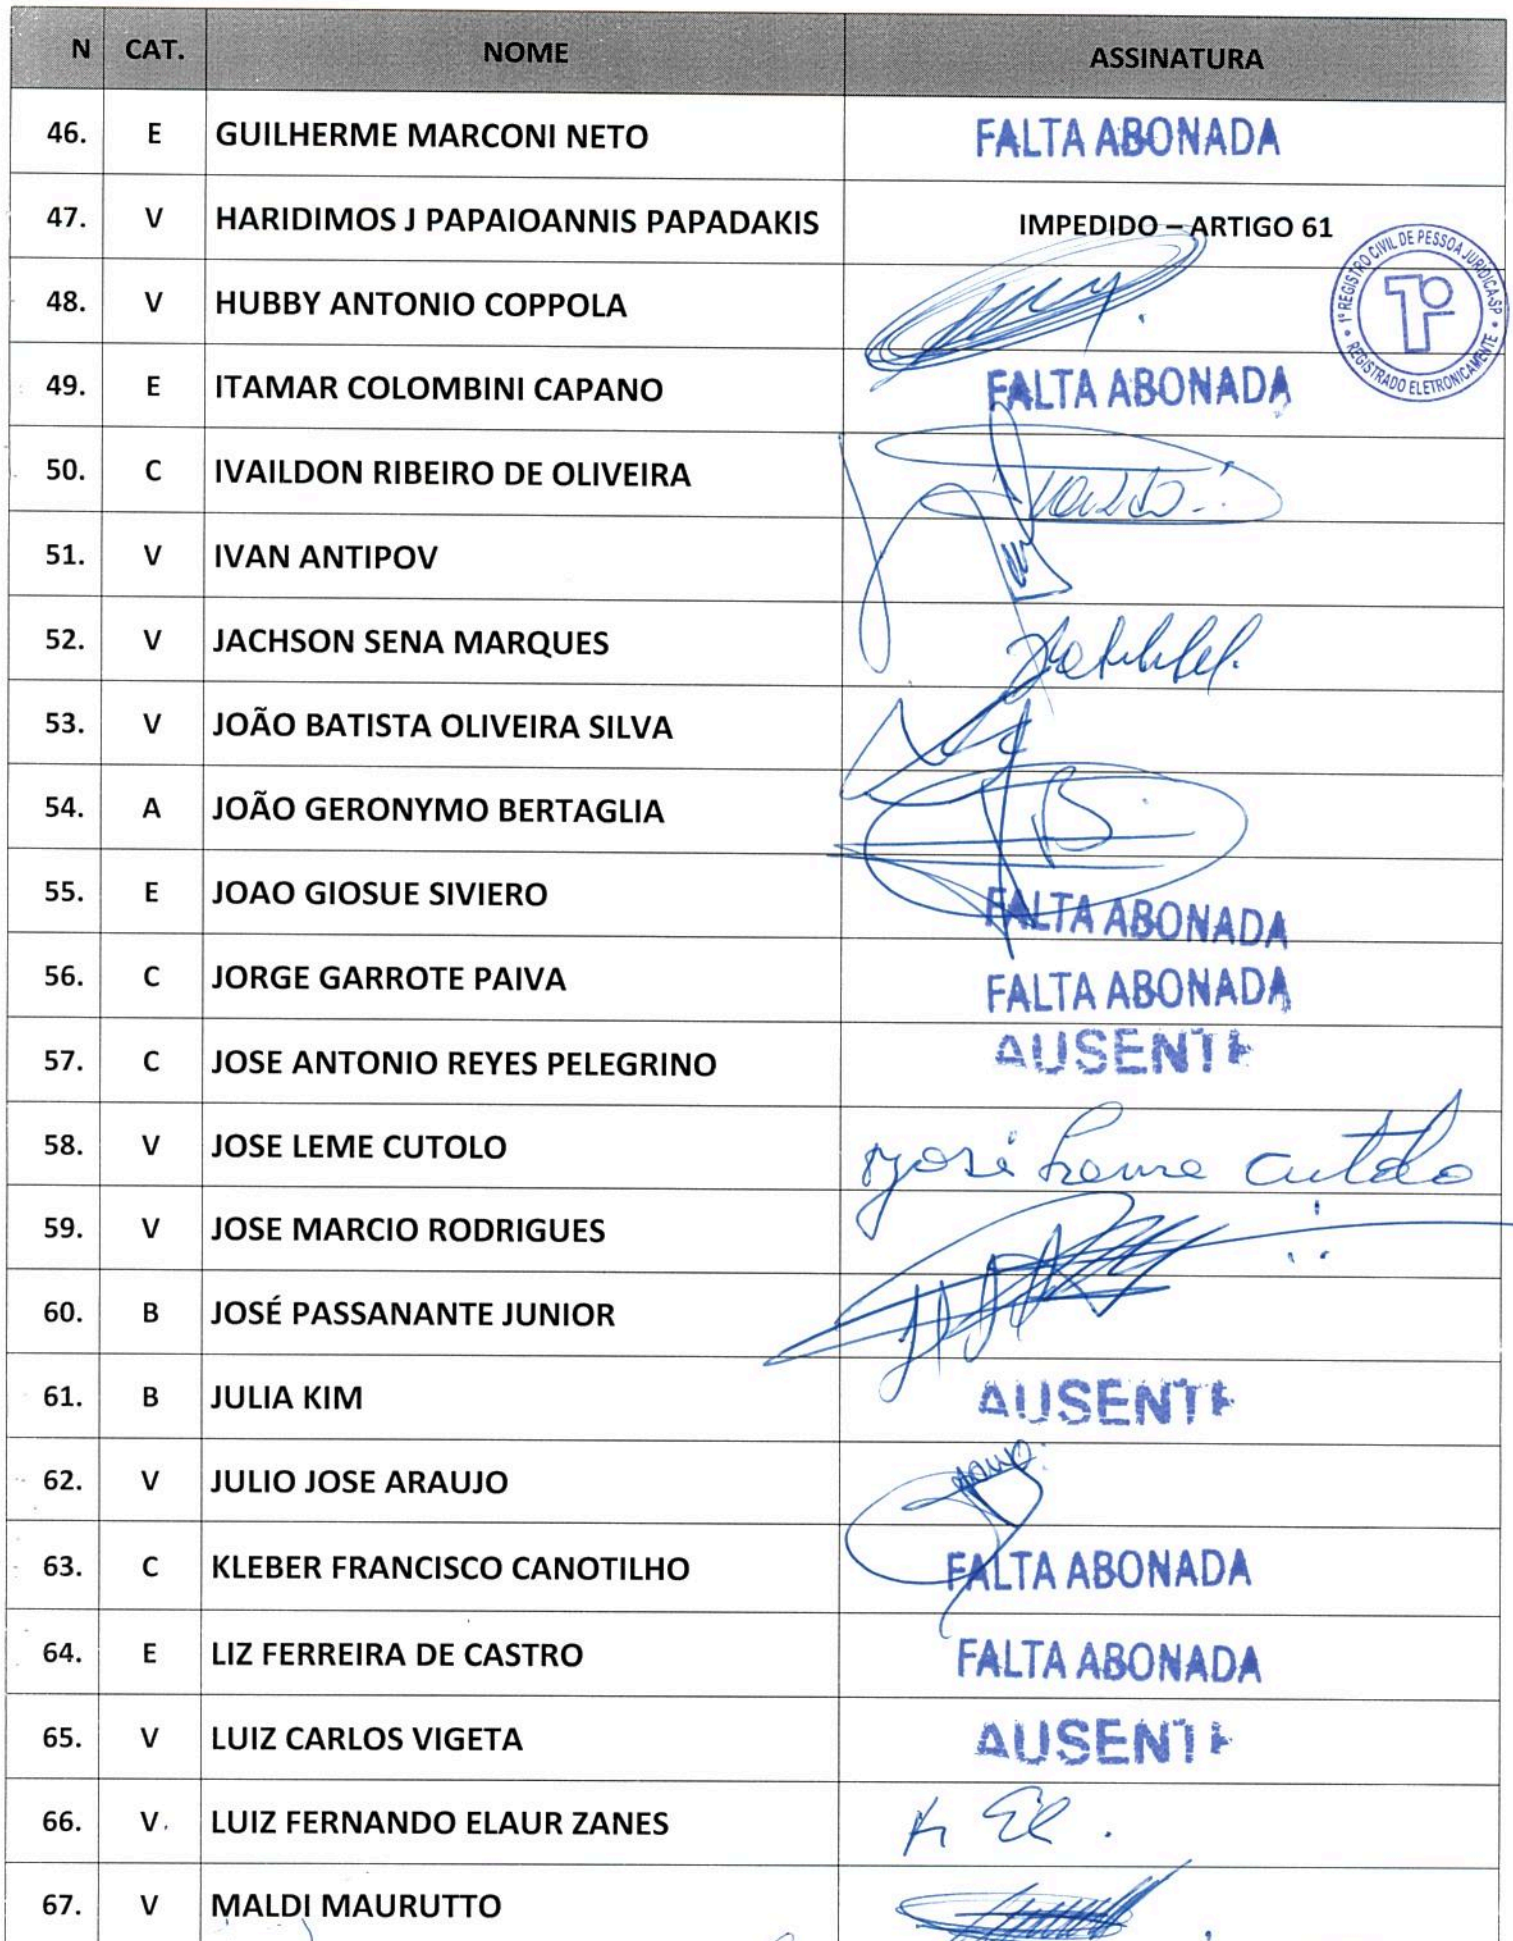 N CAT. NOME ASSINATURA
46. E GUILHERME MARCONI NETO FALTA ABONADA
47. V HARIDIMOS J PAPAIOANNIS PAPADAKIS IMPEDIDO – ARTIGO 61
1º REGISTRO CIVIL DE PESSOA JURIDICA-SP • REGISTRADO ELETRONICAMENTE •
48. V HUBBY ANTONIO COPPOLA
49. E ITAMAR COLOMBINI CAPANO FALTA ABONADA
50. C IVAILDON RIBEIRO DE OLIVEIRA
51. V IVAN ANTIPOV
52. V JACHSON SENA MARQUES
53. V JOÃO BATISTA OLIVEIRA SILVA
54. A JOÃO GERONYMO BERTAGLIA
55. E JOAO GIOSUE SIVIERO FALTA ABONADA
56. C JORGE GARROTE PAIVA FALTA ABONADA
57. C JOSE ANTONIO REYES PELEGRINO AUSENTE
58. V JOSE LEME CUTOLO José Leme Cutolo
59. V JOSE MARCIO RODRIGUES
60. B JOSÉ PASSANANTE JUNIOR
61. B JULIA KIM AUSENTE
62. V JULIO JOSE ARAUJO
63. C KLEBER FRANCISCO CANOTILHO FALTA ABONADA
64. E LIZ FERREIRA DE CASTRO FALTA ABONADA
65. V LUIZ CARLOS VIGETA AUSENTE
66. V. LUIZ FERNANDO ELAUR ZANES
67. V MALDI MAURUTTO